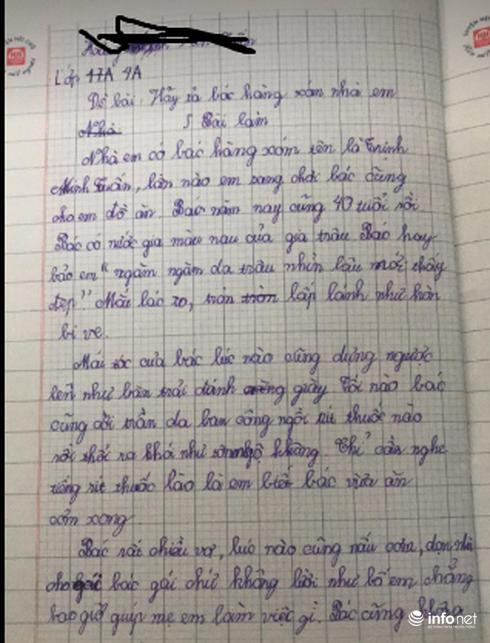 Lớp 4A
Đề bài: Hãy tả bác hàng xóm nhà em
Nhà Bài làm
Nhà em có bác hàng xóm tên là Trịnh
Minh Tuấn, lần nào em sang chơi bác cũng
cho em đồ ăn. Bác năm nay cũng 40 tuổi rồi
Bác có nước gia màu nau của gia trâu Bác hay
bảo em "ngăm ngăm da trâu nhìn lâu mới thấy
đẹp" Mắt bác to, tròn lấp lánh như hòn
bi ve.
Mái tóc của bác lúc nào cũng dựng ngược
lên như bàn trải đánh giày. Tối nào bác
cũng cởi trần da ban công ngồi rít thuốc nào
rồi thổi ra khói như sơn ngộ không. Chỉ cần nghe
tiếng rít thuốc lào là em biết bác vừa ăn
cơm xong
Bác rất chiều vợ, lúc nào cũng nấu cơm, dọn nhà
cho bác gái chứ không lười như bố em chẳng
bao giờ giúp mẹ em làm việc gì. Bác cũng
infonet